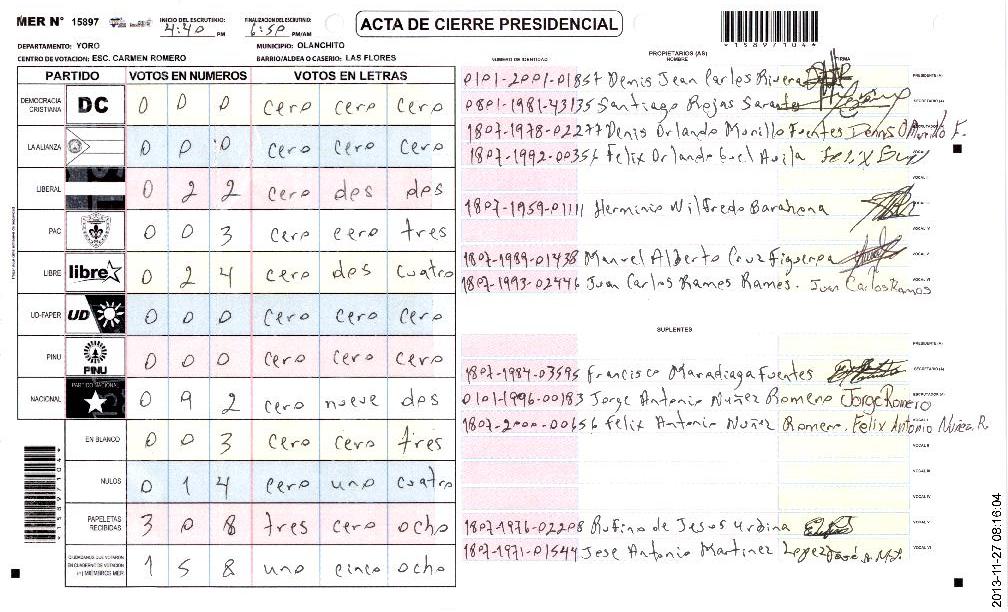 MER N° 15897 INICIO DEL ESCRUTINIO: 4:40 PM FINALIZACION DEL ESCRUTINIO: 6:50 PM/AM ACTA DE CIERRE PRESIDENCIAL
*15897104*
DEPARTAMENTO: YORO MUNICIPIO: OLANCHITO
CENTRO DE VOTACION: ESC. CARMEN ROMERO BARRIO/ALDEA O CASERIO: LAS FLORES
PARTIDO VOTOS EN NUMEROS VOTOS EN LETRAS
DEMOCRACIA CRISTIANA DC 0 0 0 cero cero cero
LA ALIANZA 0 0 0 cero cero cero
LIBERAL 0 2 2 cero dos dos
PAC 0 0 3 cero cero tres
LIBRE libre 0 2 4 cero dos cuatro
UD-FAPER UD 0 0 0 cero cero cero
PINU PINU 0 0 0 cero cero cero
NACIONAL PARTIDO NACIONAL 0 9 2 cero nueve dos
EN BLANCO 0 0 3 cero cero tres
NULOS 0 1 4 cero uno cuatro
PAPELETAS RECIBIDAS 3 0 8 tres cero ocho
CIUDADANOS QUE VOTARON EN CUADERNO DE VOTACION (+) MIEMBROS MER 1 5 8 uno cinco ocho
*15897104*
NUMERO DE IDENTIDAD PROPIETARIOS (AS) NOMBRE FIRMA
0101-2001-01857 Denis Jean Carlos Rivera PRESIDENTE (A)
0801-1981-43135 Santiago Rojas SECRETARIO (A)
1807-1978-02277 Denis Orlando Murillo Fuentes Denis O Murillo F. ESCRUTADOR (A)
1807-1992-00356 Felix Orlando Avila VOCAL I
1807-1959-01111 Herminio Wilfredo Barahona
VOCAL IV
1807-1989-01438 Manuel Alberto Cruz Figueroa VOCAL V
1807-1993-02446 Juan Carlos Rames Rames. Juan Carlos Ramos VOCAL VI
SUPLENTES
PRESIDENTE (A)
1807-1984-03595 Francisco Maradiaga Fuentes SECRETARIO (A)
0101-1996-00183 Jorge Antonio Nuñez Romero Jorge Romero ESCRUTADOR (A)
1807-2000-00656 Felix Antonio Nuñez Romero. Felix Antonio Nuñez. R
VOCAL II
VOCAL III
VOCAL IV
1807-1976-02208 Rufino de Jesus Urbina VOCAL V
1807-1971-01544 Jose Antonio Martinez Lopez José A. M. L. VOCAL VI
2013-11-27 08:16:04